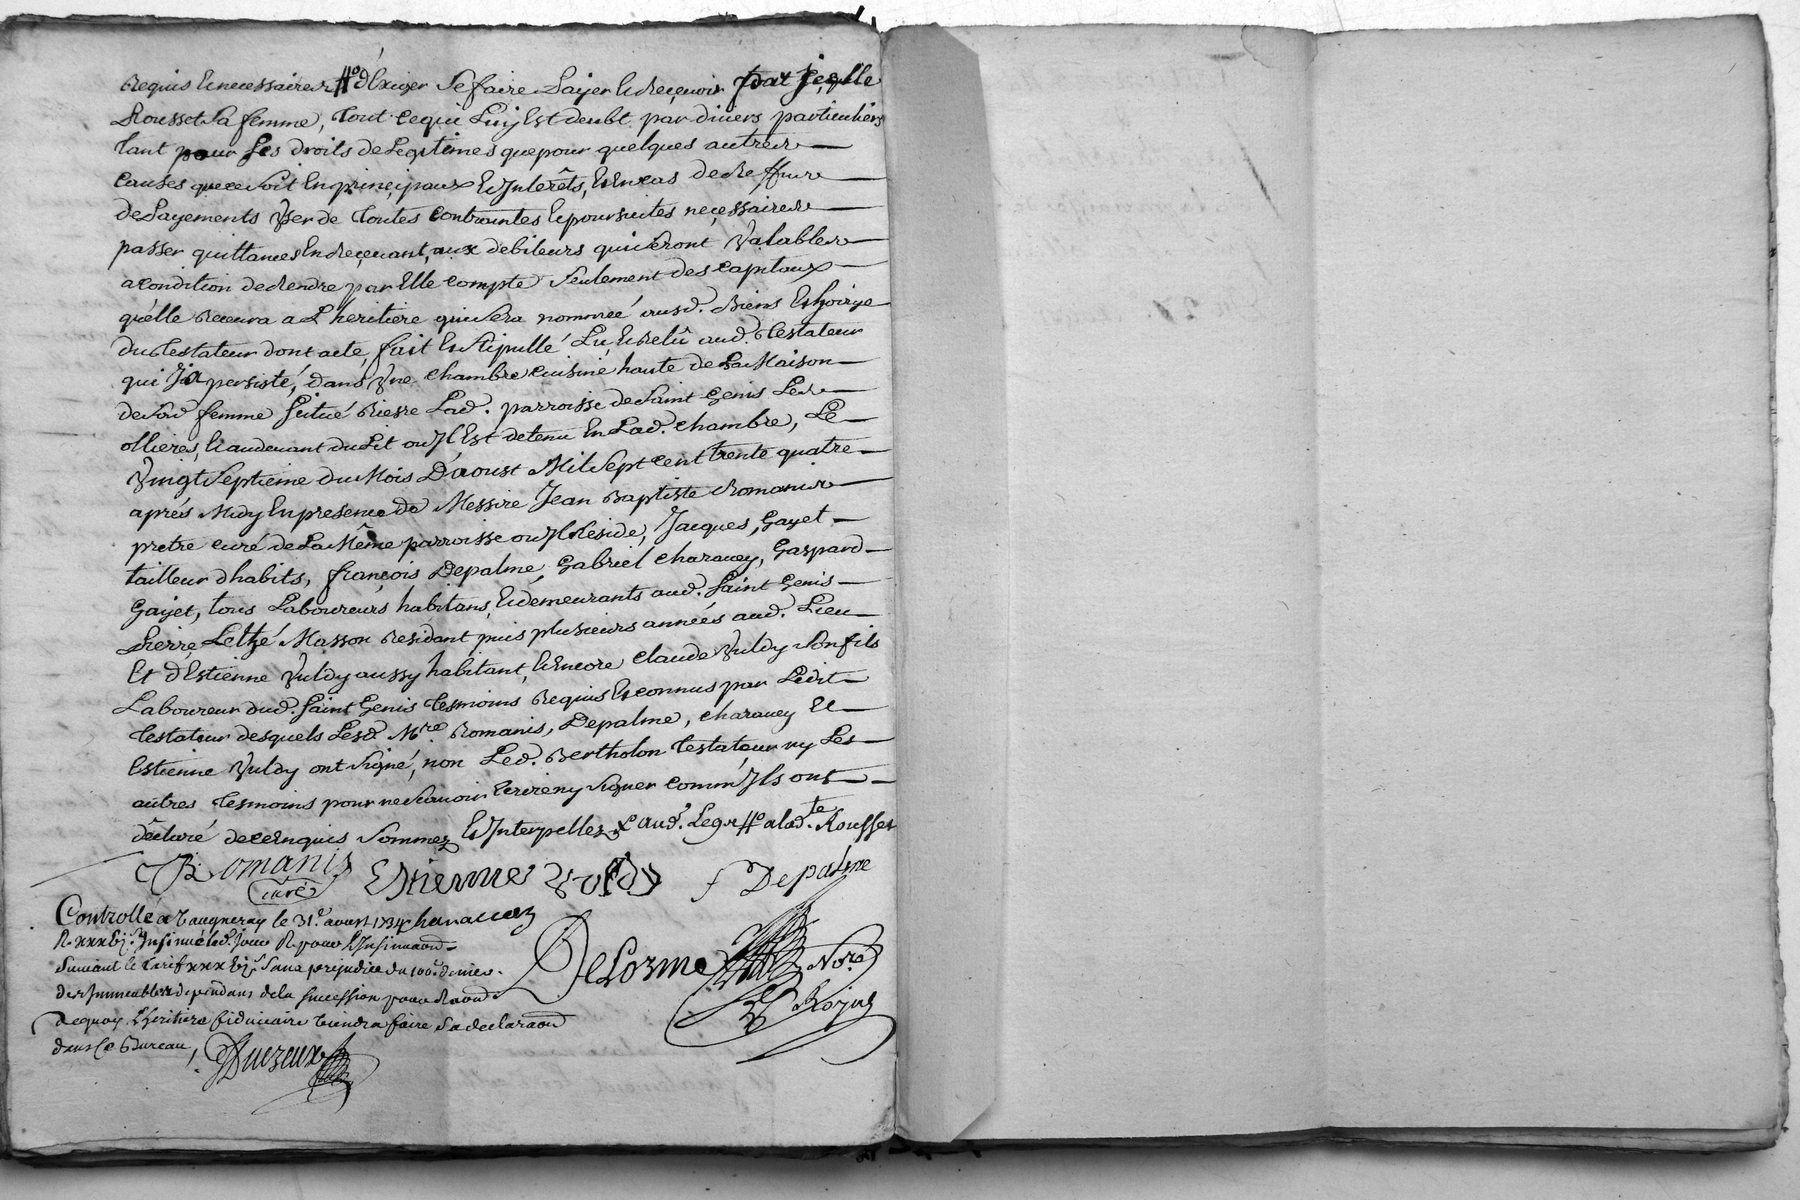 Requis & necessaires #o d'Exiger Se faire Payer & Reçevoir pour jçelle
Rousset Sa femme, tout ce qui Luy Est deubt par divers particuliers
tant pour Ses droits de Legitimes que pour quelques autres
causes que ce Soit En prinçipaux & Interêts, & En cas de Reffus
de Payements User de toutes Contraintes & poursuites neçessaires
passer quittances En Reçevant, aux debiteurs qui Seront Valables
a condition de Rendre par Elle compte Seulement des capitaux
qu'elle Recevra a L'heritiere qui Sera nommée ausd. Biens & hoirye
du testateur dont acte, fait & Stipullé Lu, & Relû aud. testateur
qui y a persisté, dans Une chambre cuisine haute de La Maison
de Sad. femme Scitué Riere Lad. parroisse de Saint Genis Les
ollieres, & au devant du Lit ou Jl Est detenu En Lad. chambre, Le
Vingt Septieme du Mois D'aoust Mil Sept cent trente quatre
aprés Midy En presence de Messire Jean Baptiste Romanis
pretre curé de La Même parroisse ou Jl Reside, Jacques Gayet
tailleur d'habits, françois Depalme, Gabriel charavey, Gaspard
Gayet, tous Laboureurs habitans, & demeurants aud. Saint Genis
Pierre Masson Residant puis plusieurs années aud. Lieu
Et d'Estienne Vuldy aussy habitant, & Encore claude Vuldy Son fils
Laboureur dud. Saint Genis tesmoins Requis & connus par Ledit
testateur desquels Lesd. Mre. Romanis, Depalme, charavey &
Estienne Vuldy ont Signé, non Led. Bertholon testateur ny Les
autres tesmoins pour ne Scavoir Ecrire ny Signer comm'Jls ont
déclaré de ce Enquis Sommez & Interpellez aud. Leg. #o a lad.te Rousset
Romanis
curé
Estienne Vuldy
f Depalme
Controllé a Vaugneray le 31e. aoust 1734 charavey
R. xxx Insinué led. Jour R. pour L'Insinuaon
Suivant le tarif xxx Sans prejudice du 100e. denier
des Immeubles dependans de la succession pour Raon
Dequoy L'heritiere fiduciaire viendra faire Sa declaraon
dans Ce Bureau,
DeLorme
Nore
Royal